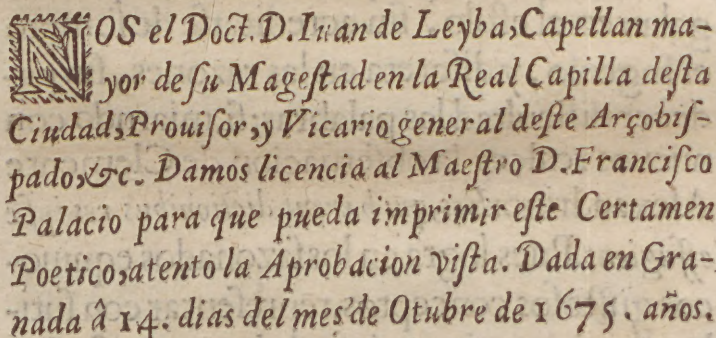 NOS el Doct. D. Iuan de Leyba, Capellan ma-
yor de ſu Mageſtad en la Real Capilla deſta
Ciudad, Prouiſor, y Vicario general deſte Arçobiſ-
pado, &c. Damos licencia al Maeſtro D. Franciſco
Palacio para que pueda imprimir eſte Certamen
Poetico, atento la Aprobacion viſta. Dada en Gra-
nada â 14. dias del mes de Otubre de 1675. años.